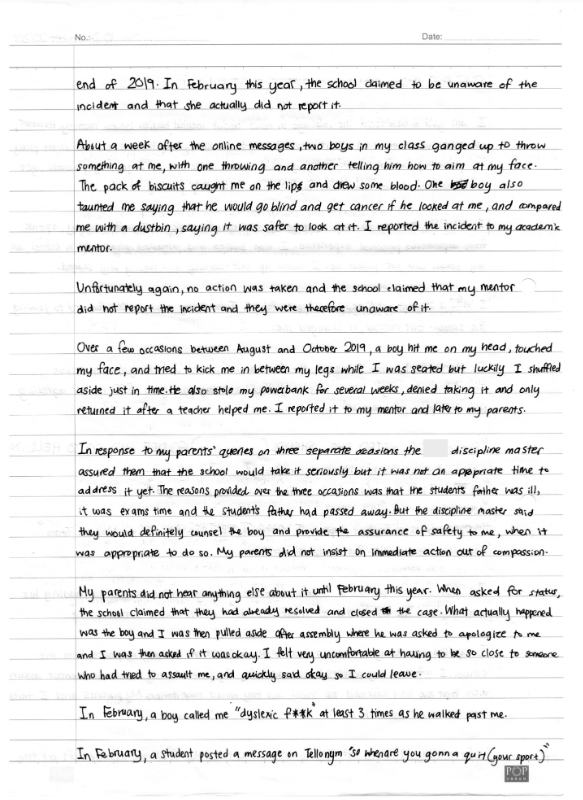 No.:
Date:
end of 2019. In February this year, the school claimed to be unaware of the
incident and that she actually did not report it.
About a week after the online messages, two boys in my class ganged up to throw
something at me, with one throwing and another telling him how to aim at my face.
The pack of biscuits caught me on the lips and drew some blood. One boy also
taunted me saying that he would go blind and get cancer if he looked at me, and compared
me with a dustbin, saying it was safer to look at it. I reported the incident to my academic
mentor.
Unfortunately again, no action was taken and the school claimed that my mentor
did not report the incident and they were therefore unaware of it.
Over a few occasions between August and October 2019, a boy hit me on my head, touched
my face, and tried to kick me in between my legs while I was seated but luckily I shuffled
aside just in time. He also stole my powerbank for several weeks, denied taking it and only
returned it after a teacher helped me. I reported it to my mentor and later to my parents.
In response to my parents' queries on three separate occasions the discipline master
assured them that the school would take it seriously but it was not an appropriate time to
address it yet. The reasons provided over the three occasions was that the students father was ill,
it was exams time and the student's father had passed away. But the discipline master said
they would definitely counsel the boy and provide the assurance of safety to me, when it
was appropriate to do so. My parents did not insist on immediate action out of compassion.
My parents did not hear anything else about it until February this year. When asked for status,
the school claimed that they had already resolved and closed the case. What actually happened
was the boy and I was then pulled aside after assembly where he was asked to apologize to me
and I was then asked if it was okay. I felt very uncomfortable at having to be so close to someone
who had tried to assault me, and quickly said okay so I could leave.
In February, a boy called me "dyslexic f**k" at least 3 times as he walked past me.
In February, a student posted a message on Tellonym "so when are you gonna quit (your sport)"
POP